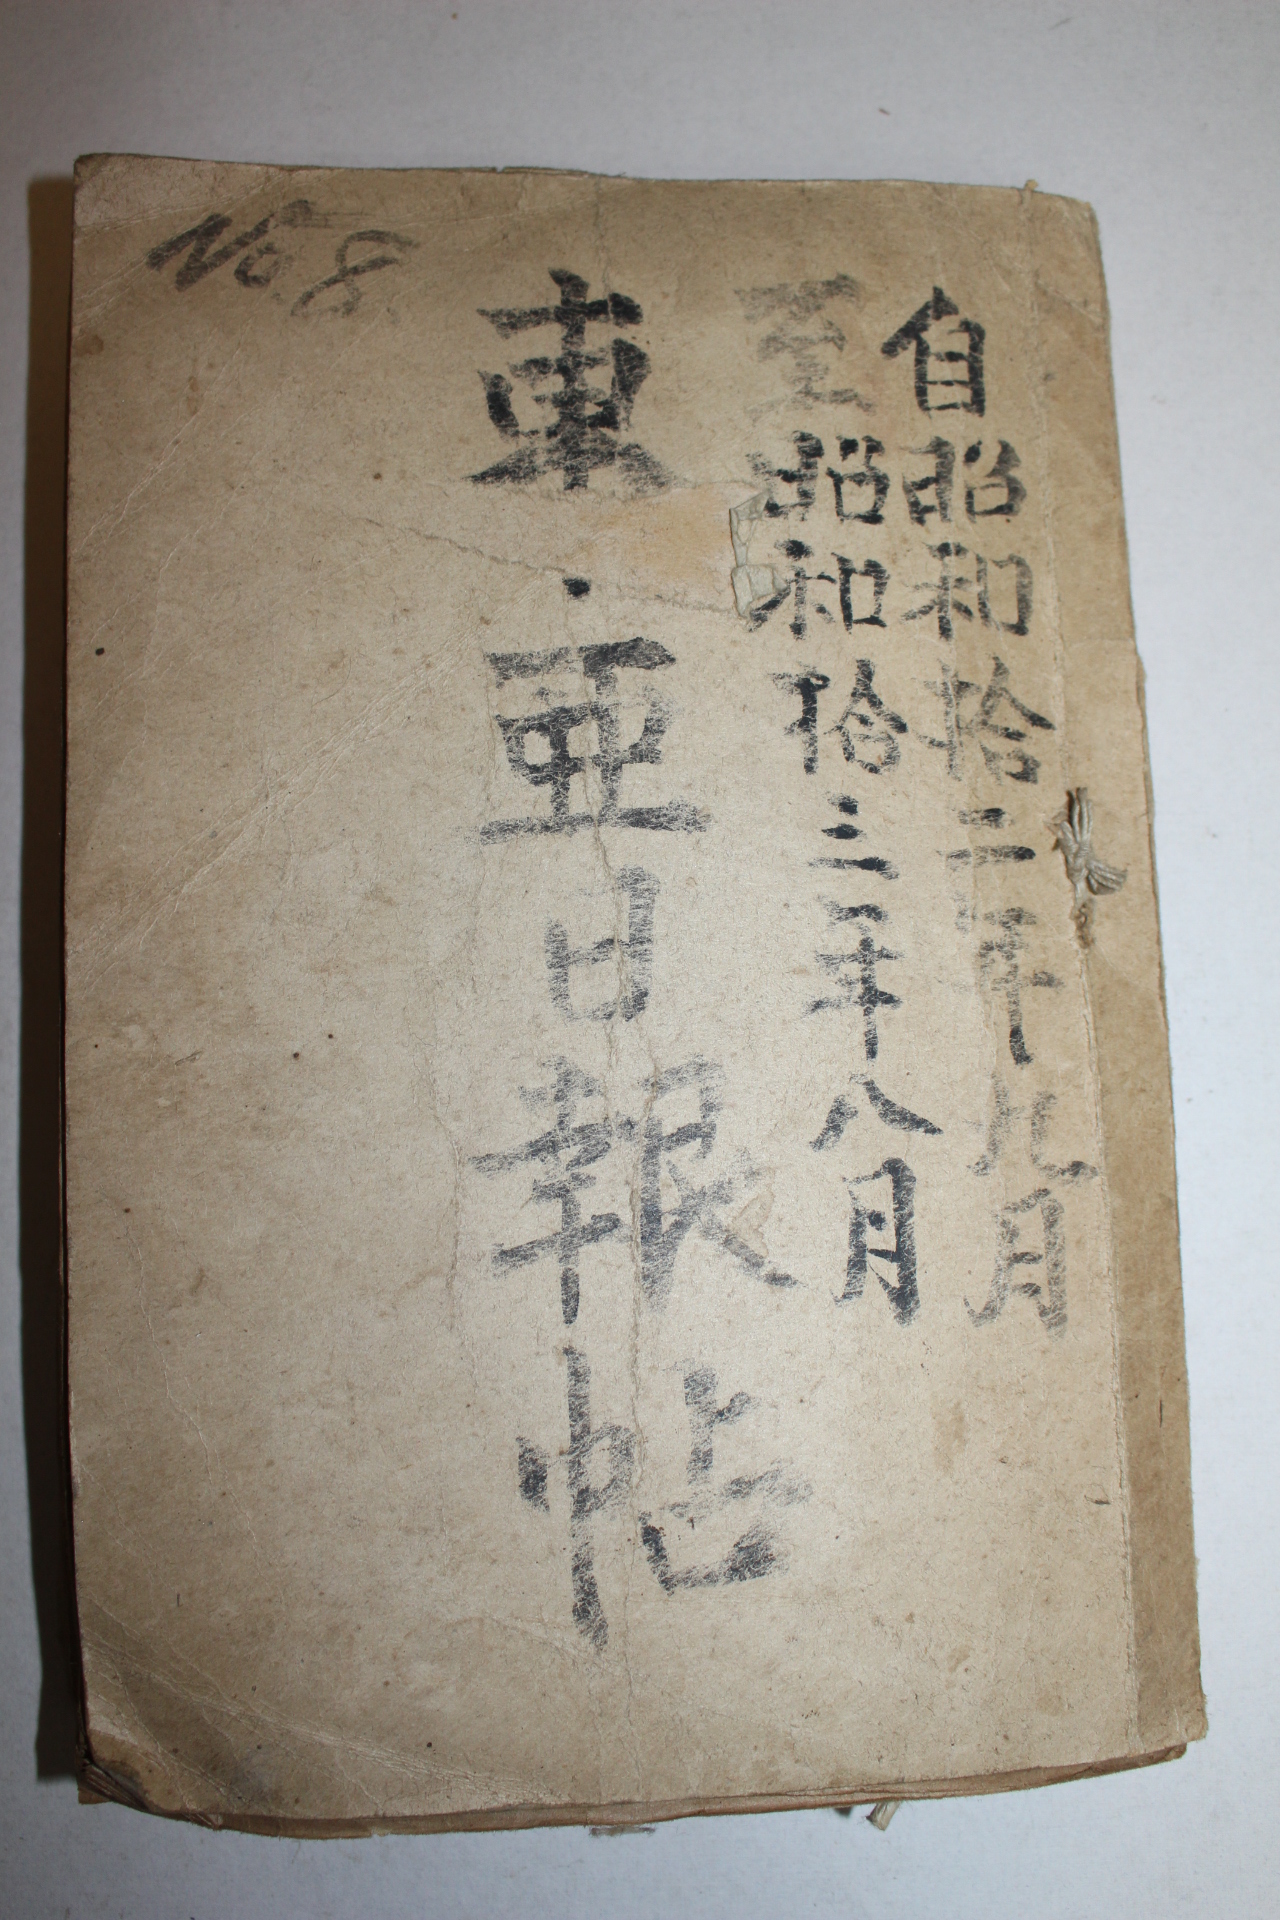 自昭和拾二年九月
至昭和拾三年八月
東亜日報帖
No. 8.